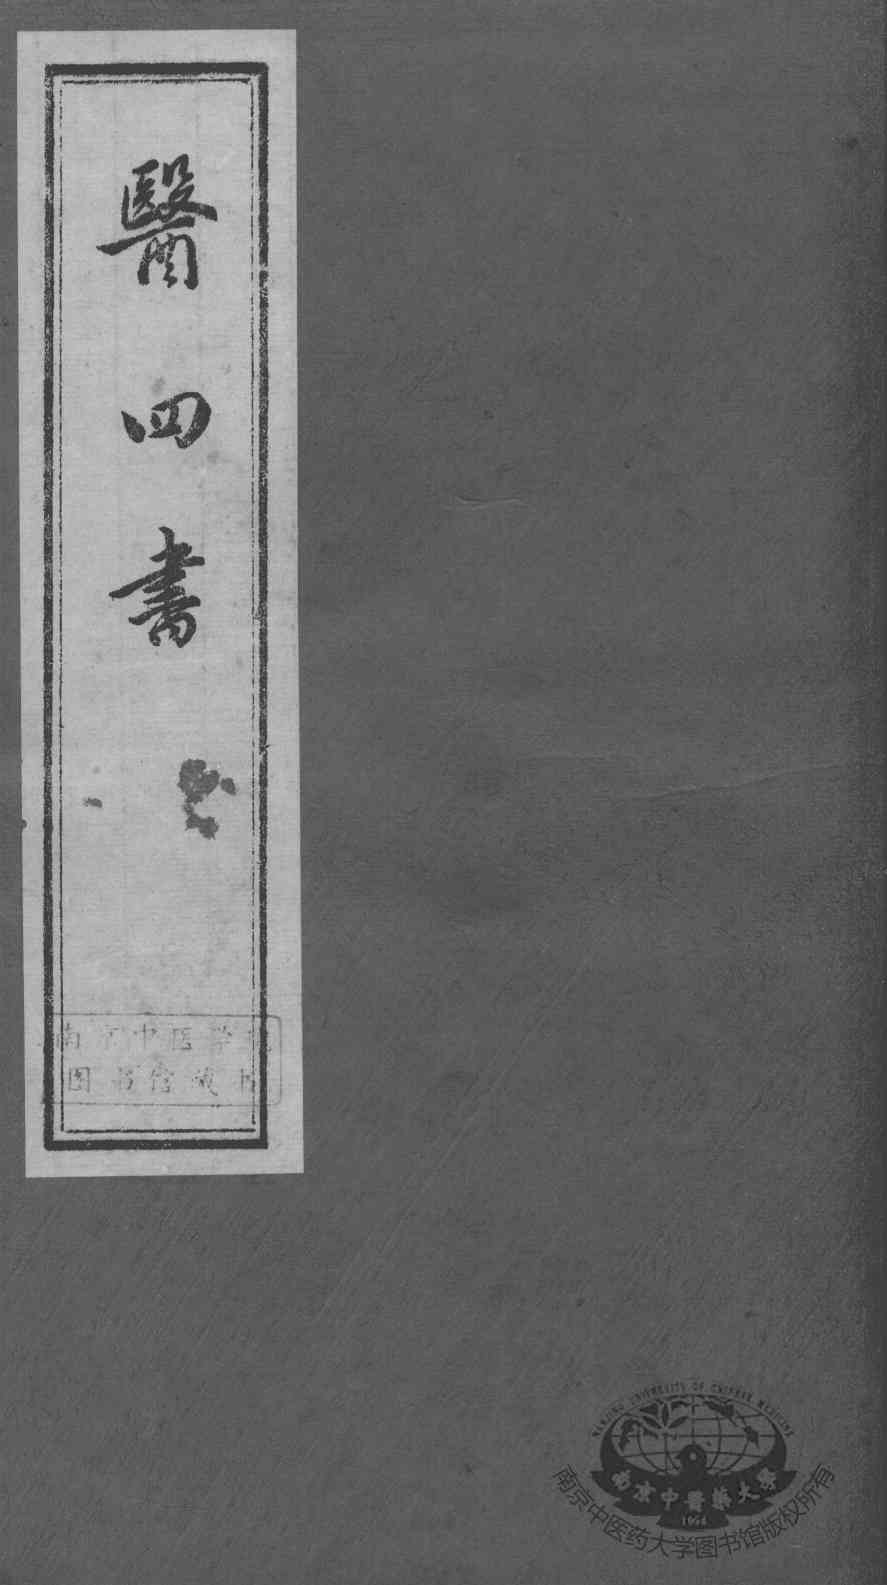 醫四書
南京中医学院
图书馆藏书
NANJING UNIVERSITY OF CHINESE MEDICINE
南京中醫藥大學
1954
南京中医药大学图书馆版权所有